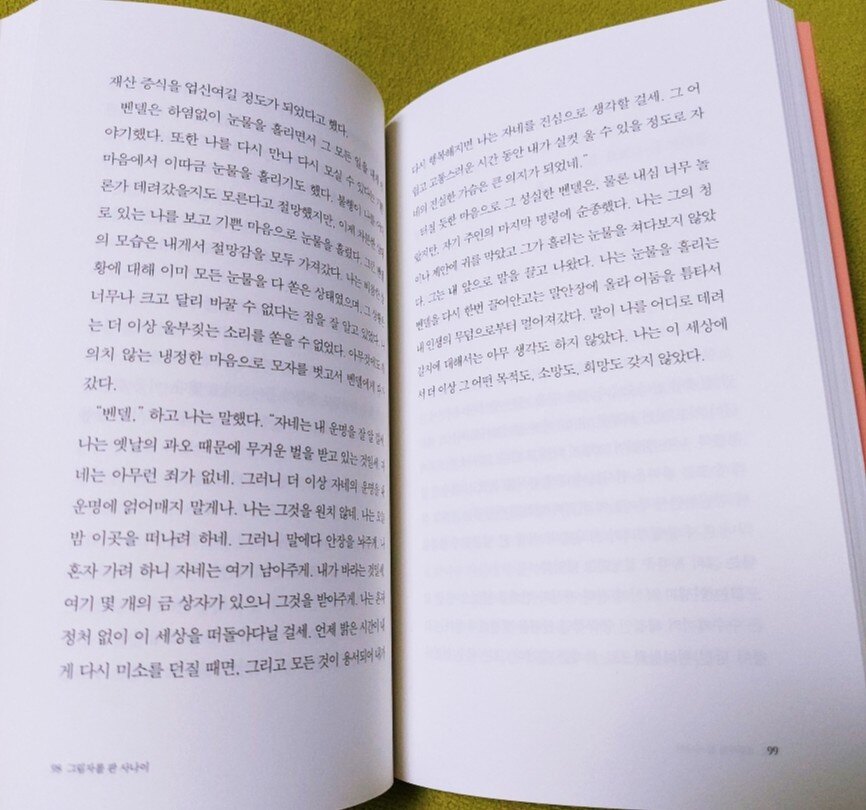 재산 증식을 업신여길 정도가 되었다고 했다.
벤델은 하염없이 눈물을 흘리면서 그 모든 일을 내게
야기했다. 또한 나를 다시 만나 다시 모실 수 있다는
마음에서 이따금 눈물을 흘리기도 했다. 불행이 나를
론가 데려갔을지도 모른다고 절망했지만, 이제 차분한
로 있는 나를 보고 기쁜 마음으로 눈물을 흘렸다. 그런
의 모습은 내게서 절망감을 모두 가져갔다. 나는
황에 대해 이미 모든 눈물을 다 쏟은 상태였으며, 그
너무나 크고 달리 바꿀 수 없다는 점을 잘 알고 있었다. 나
는 더 이상 울부짖는 소리를 쏟을 수 없었다. 아무것에도
의치 않는 냉정한 마음으로 모자를 벗고서 벤델에게
갔다.
“벤델,” 하고 나는 말했다. “자네는 내 운명을 잘 알 걸세.
나는 옛날의 과오 때문에 무거운 벌을 받고 있는 것일세.
네는 아무런 죄가 없네. 그러니 더 이상 자네의 운명을
운명에 얽어매지 말게나. 나는 그것을 원치 않네. 나는 오늘
밤 이곳을 떠나려 하네. 그러니 말에다 안장을 놔주게. 나
혼자 가려 하니 자네는 여기 남아주게. 내가 바라는 것일세.
여기 몇 개의 금 상자가 있으니 그것을 받아주게. 나는 혼자
정처 없이 이 세상을 떠돌아다닐 걸세. 언제 밝은 시간이 내
게 다시 미소를 던질 때면, 그리고 모든 것이 용서되어 내가
98 그림자를 판 사나이
다시 행복해지면 나는 자네를 진심으로 생각할 걸세. 그 어
렵고 고통스러운 시간 동안 내가 실컷 울 수 있을 정도로 자
네의 진실한 가슴은 큰 의지가 되었네.”
터질 듯한 마음으로 그 성실한 벤델은, 물론 내심 너무 놀
랐지만, 자기 주인의 마지막 명령에 순종했다. 나는 그의 청
이나 제안에 귀를 막았고 그가 흘리는 눈물을 쳐다보지 않았
다. 그는 내 앞으로 말을 끌고 나왔다. 나는 눈물을 흘리는
벤델을 다시 한번 끌어안고는 말안장에 올라 어둠을 틈타서
내 인생의 무덤으로부터 멀어져갔다. 말이 나를 어디로 데려
갈지에 대해서는 아무 생각도 하지 않았다. 나는 이 세상에
서 더 이상 그 어떤 목적도, 소망도, 희망도 갖지 않았다.
99